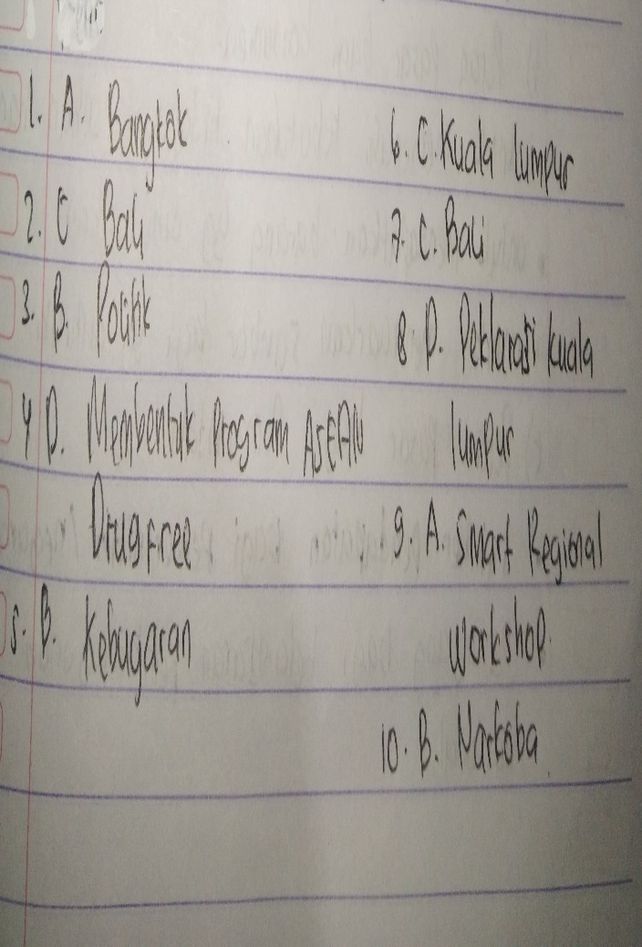 1. A. Bangkok
2. C Bali
3. B. Politik
4 D. Membentuk Program ASEAN
Drug Free
5. B. Kebugaran
6. C. Kuala lumpur
7. C. Bali
8. D. Deklarasi Kuala
lumpur
9. A. Smart Regional
workshop.
10. B. Narkoba